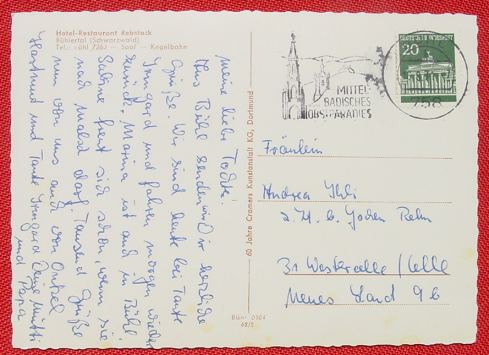 Hotel-Restaurant Rebstock
Bühlertal (Schwarzwald)
Tel.: Bühl 7263 — Saal — Kegelbahn
Meine liebe
Aus Bühl senden wir Dir herzliche
Grüße. Wir sind heute bei Tante
Irmgard und fahren morgen wieder
zurück. Marina ist auch in Bühl.
Sabine freut sich schon, wenn sie
nach darf. Tausend Grüße
nun von uns auch von Onkel
Hartmut und Tante Irmgard Deine Mutti
und Papa
60 Jahre Cramers Kunstanstalt KG, Dortmund
Bühl 0104
68/2
MITTEL-
BADISCHES
OBSTPARADIES
DEUTSCHE BUNDESPOST
20
758
Fräulein
Andrea
z. Zt. b.
31 Westercelle / Celle
Neues Land 9b